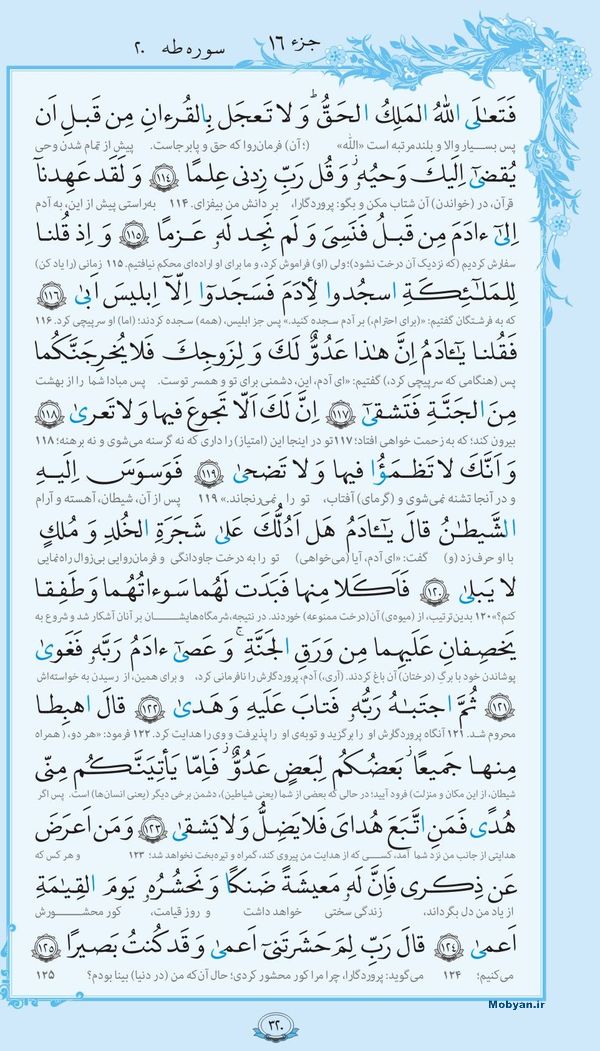 جزء ۱۶
سوره طه ۲۰
فَتَعٰلَى اللهُ المَلِكُ الحَقُّ ۗ وَ لا تَعجَل بِالقُرءانِ مِن قَبلِ اَن
پس بسیار والا و بلندمرتبه است «الله» (؛ آن) فرمان‌روا که حق و پابرجاست. پیش از تمام شدن وحی
يُقضىٰٓ اِلَيكَ وَحيُهٗ ۖ وَ قُل رَبِّ زِدنى عِلمًا ﴿۱۱۴﴾ وَ لَقَد عَهِدنآ
قرآن، در (خواندن) آن شتاب مکن و بگو: پروردگارا، بر دانش من بیفزای. ۱۱۴ به‌راستی پیش از این، به آدم
اِلىٰٓ ءادَمَ مِن قَبلُ فَنَسِىَ وَ لَم نَجِد لَهٗ عَزمًا ﴿۱۱۵﴾ وَ اِذ قُلنا
سفارش کردیم (که نزدیک آن درخت نشود)؛ ولی (او) فراموش کرد، و ما برای او اراده‌ای محکم نیافتیم. ۱۱۵ زمانی (را یاد کن)
لِلمَلٰٓئِكَةِ اسجُدوا لِأٰدَمَ فَسَجَدوٓا اِلّآ اِبليسَ اَبىٰ ﴿۱۱۶﴾
که به فرشتگان گفتیم: «(برای احترام،) بر آدم سجده کنید.» پس جز ابلیس، (همه) سجده کردند؛ (اما) او سرپیچی کرد. ۱۱۶
فَقُلنا يٰٓـَٔادَمُ اِنَّ هٰذا عَدُوٌّ لَكَ وَ لِزَوجِكَ فَلا يُخرِجَنَّكُما
پس (هنگامی که سرپیچی کرد،) گفتیم: «ای آدم، این، دشمنی برای تو و همسر توست. پس مبادا شما را از بهشت
مِنَ الجَنَّةِ فَتَشقىٰٓ ﴿۱۱۷﴾ اِنَّ لَكَ اَلّا تَجوعَ فيها وَ لا تَعرىٰ ﴿۱۱۸﴾
بیرون کند؛ که به زحمت خواهی افتاد؛ ۱۱۷ تو در اینجا این (امتیاز) را داری که نه گرسنه می‌شوی و نه برهنه؛ ۱۱۸
وَ اَنَّكَ لا تَظمَؤُا فيها وَ لا تَضحىٰ ﴿۱۱۹﴾ فَوَسوَسَ اِلَيهِ
و در آنجا تشنه نمی‌شوی و (گرمای) آفتاب، تو را نمی‌رنجاند.» ۱۱۹ پس از آن، شیطان، آهسته و آرام
الشَّيطٰنُ قالَ يٰٓـَٔادَمُ هَل اَدُلُّكَ عَلىٰ شَجَرَةِ الخُلدِ وَ مُلكٍ
با او حرف زد (و) گفت: «ای آدم، آیا (می‌خواهی) تو را به درخت جاودانگی و فرمان‌روایی بی‌زوال راه‌نمایی
لا يَبلىٰ ﴿۱۲۰﴾ فَاَكَلا مِنها فَبَدَت لَهُما سَوءٰتُهُما وَ طَفِقا
کنم؟» ۱۲۰ بدین‌ترتیب، از (میوه‌ی) آن (درخت ممنوعه) خوردند. در نتیجه، شرمگاه‌هایشان بر آنان آشکار شد و شروع به
يَخصِفانِ عَلَيهِما مِن وَرَقِ الجَنَّةِ ۚ وَ عَصىٰٓ ءادَمُ رَبَّهٗ فَغَوىٰ
پوشاندن خود با برگ (درختان) آن باغ کردند. (آری،) آدم، پروردگارش را نافرمانی کرد، و برای همین، از رسیدن به خواسته‌اش
﴿۱۲۱﴾ ثُمَّ اجتَبٰهُ رَبُّهٗ فَتابَ عَلَيهِ وَ هَدىٰ ﴿۱۲۲﴾ قالَ اهبِطا
محروم شد. ۱۲۱ آنگاه پروردگارش او را برگزید و توبه‌ی او را پذیرفت و وی را هدایت کرد. ۱۲۲ فرمود: «هر دو، (همراه
مِنها جَميعًا ۖ بَعضُكُم لِبَعضٍ عَدُوٌّ ۖ فَاِمّا يَأتِيَنَّكُم مِنّى
شیطان، از این مکان و منزلت) فرود آیید؛ در حالی که بعضی از شما (یعنی شیاطین)، دشمن برخی دیگر (یعنی انسان‌ها) است. پس اگر
هُدًى فَمَنِ اتَّبَعَ هُداىَ فَلا يَضِلُّ وَ لا يَشقىٰ ﴿۱۲۳﴾ وَ مَن اَعرَضَ
هدایتی از جانب من نزد شما آمد، کسی که از هدایت من پیروی کند، گمراه و تیره‌بخت نخواهد شد؛ ۱۲۳ و هر کس که
عَن ذِكرى فَاِنَّ لَهٗ مَعيشَةً ضَنكًا وَ نَحشُرُهٗ يَومَ القِيٰمَةِ
از یاد من دل بگرداند، زندگی سختی خواهد داشت و روز قیامت، کور محشورش
اَعمىٰ ﴿۱۲۴﴾ قالَ رَبِّ لِمَ حَشَرتَنىٓ اَعمىٰ وَ قَد كُنتُ بَصيرًا ﴿۱۲۵﴾
می‌کنیم؛ ۱۲۴ می‌گوید: پروردگارا، چرا مرا کور محشور کردی؛ حال آن‌که من (در دنیا) بینا بودم؟ ۱۲۵
Mobyan.ir
۳۲۰